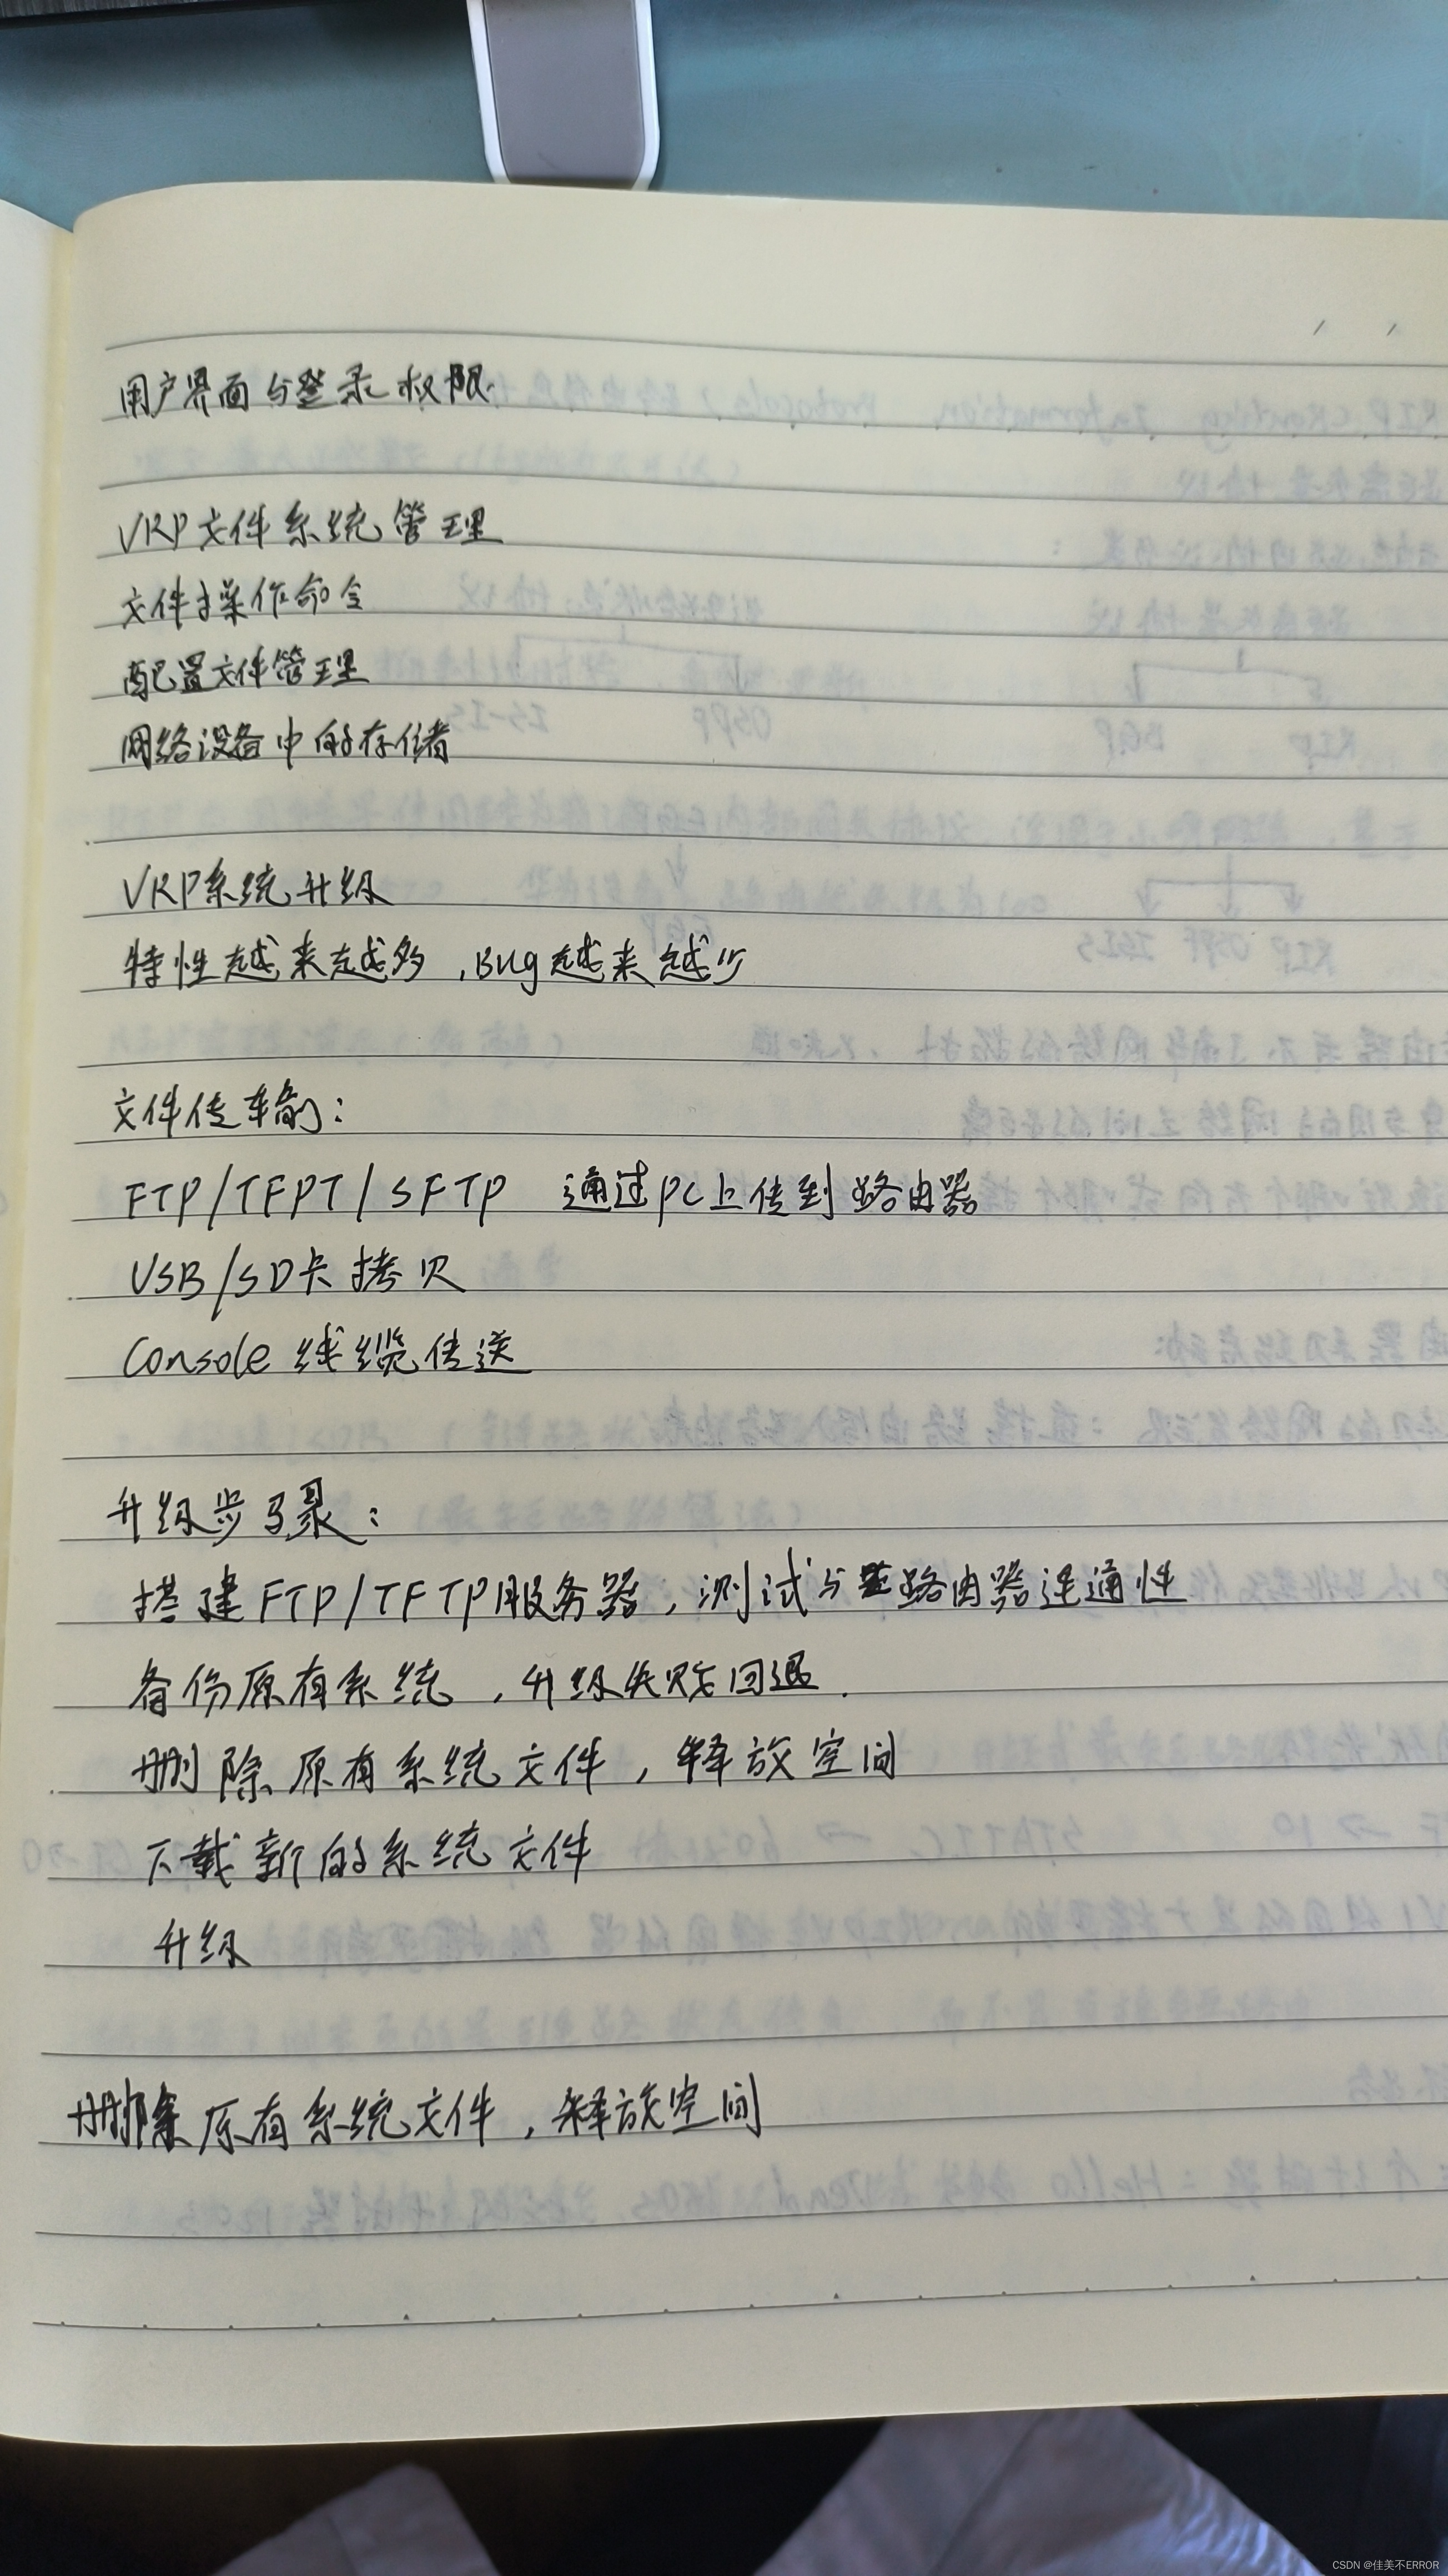 用户界面与登录权限
VRP文件系统管理
文件操作命令
配置文件管理
网络设备中的存储
VRP系统升级
特性越来越多,Bug越来越少
文件传输:
FTP/TFPT/SFTP 通过PC上传到路由器
USB/SD卡拷贝
Console线缆传送
升级步骤:
搭建FTP/TFTP服务器,测试与路由器连通性
备份原有系统,升级失败回退.
删除原有系统文件,释放空间
下载新的系统文件
升级
删除原有系统文件,释放空间
CSDN @佳美不ERROR